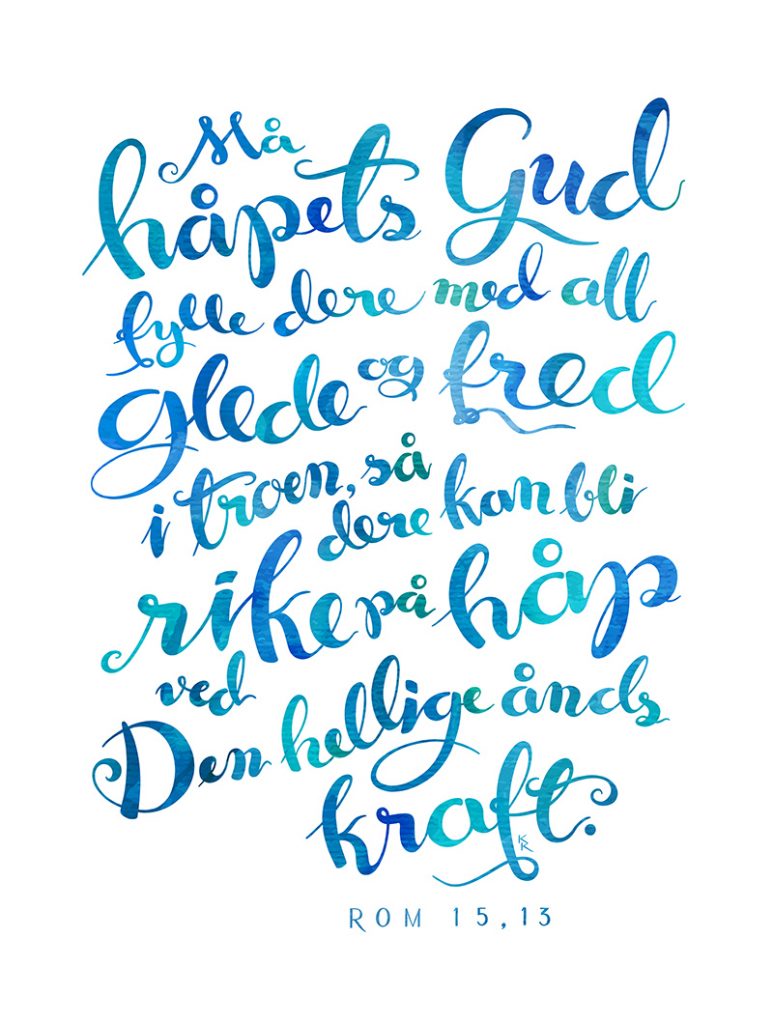 Må
håpets Gud
fylle dere med all
glede og fred
i troen, så
dere kan bli
rike på håp
ved
Den hellige ånds
kraft.
KR
ROM 15,13